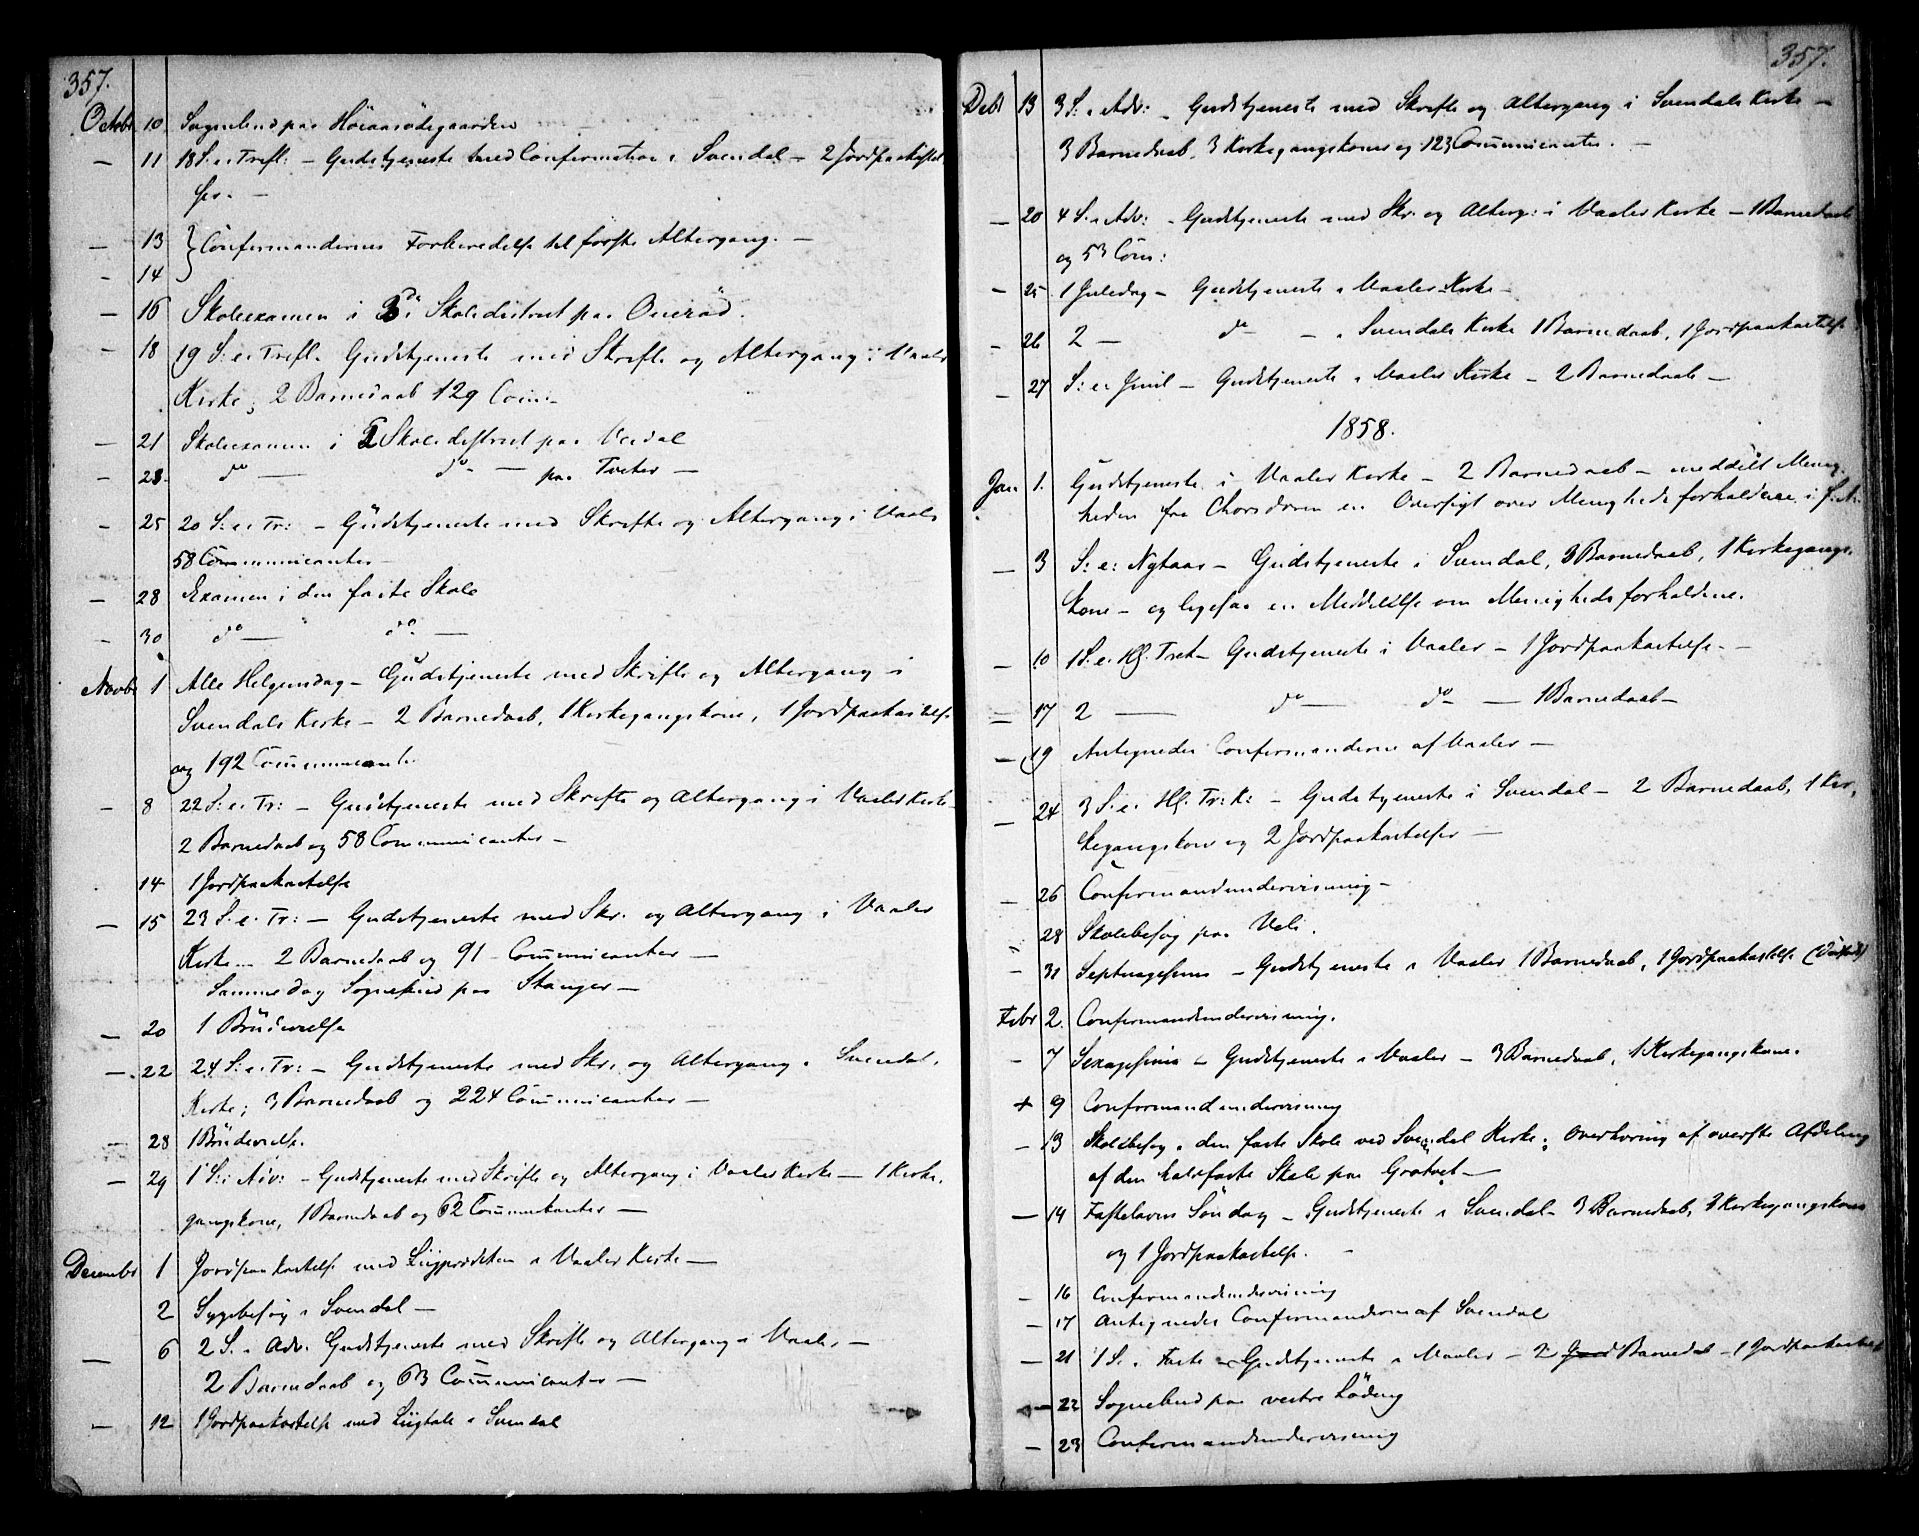 357.
Octobr 10 Sognebud paa
— 11 18 S. e. Trefl: – Gudstjeneste med Confirmation i Svendal – 2 Jordpaakastel
ser. –
— 13 } Confirmandernes Forberedelse til første Altergang. –
– 14
– 16 Skoleexamen i 3die Skoledistrict paa
– 18 19 S. e. Trefl. Gudstjeneste med Skrifte og Altergang i Vaaler
Kirke; 2 Barnedaab 129 Com:
— 21 Skoleexamen i Skoledistrict paa
– 23. do — do — paa Tveter –
– 25 20 S: e. Tr: – Gudstjeneste med Skrifte og Altergang i Vaaler
58 Communicanter –
– 28 Examen i den faste Skole
– 30 do — do. —
Novbr 1 Alle Helgensdag – Gudstjeneste med Skrifte og Altergang i
Svendals Kirke – 2 Barnedaab, 1 Kirkegangskone, 1 Jordpaakastelse
og 192 Communicanter
– 8 22 S: e. Tr: – Gudstjeneste med Skrifte og Altergang i Vaaler Kirke –
2 Barnedaab og 58 Communicanter –
14 1 Jordpaakastelse
— 15 23 S. e. Tr: – Gudstjeneste med Skr. og Altergang i Vaaler
Kirke – 2 Barnedaab og 91 – Communicanter —
Samme dag Sognebud paa Stanger –
— 20 1 Brudevielse
—. 22 24 S. e. Tr: – Gudstjeneste med Skr. og Altergang i Svendal,
Kirke; 3 Barnedaab og 224 Communicanter —
— 28 1 Brudevielse.
— 29 1 S: i Adv: – Gudstjeneste med Skrifte og Altergang i Vaaler Kirke — 1 Kirke,
gangskone, 1 Barnedaab og 62 Communikanter —
Decembr 1 Jordpaakastelse med Liigprædiken i Vaaler Kirke —
2 Sygebesøg i Svendal –
— 6 2 S. i Adv. Gudstjeneste med Skrifte og Altergang i Vaaler –
2 Barnedaab og 63 Communicanter —
— 12 1 Jordpaakastelse med Liigtale i Svendal
357.
Debr 13 3 S. i Adv: – Gudstjeneste med Skrifte og Altergang i Svendals Kirke –
3 Barnedaab, 3 Kirkegangskoner og 123 Communicanter. –
— 20 4 S. i Adv: – Gudstjeneste med Skr. og Alterg: i Vaaler Kirke – 1 Barnedaab
og 53 Com:
– 25 1 Juledag – Gudstjeneste i Vaaler Kirke –
– 26 2 – do – i Svendals Kirke 1 Barnedaab, 1 Jordpaakastelse
– 27 S: e. Juul – Gudstjeneste i Vaaler Kirke – 2 Barnedaab –
1858.
Jan. 1. Gudstjeneste i Vaaler Kirke – 2 Barnedaab – meddeelt Menig,
heden fra Chorsdøren en Oversigt over Menighedsforholdene i f. A.
— 3 S: e: Nytaar – Gudstjeneste i Svendal, 3 Barnedaab, 1 Kirkegangs,
kone – og ligesaa en Meddelelse om Menighedsforholdene.
— 10 1 S. e. Hl. Trek – Gudstjeneste i Vaaler – 1 Jordpaakastelse. –
— 17 2 — do — do — 1 Barnedaab –
– 19 Antegnedes Confirmanderne af Vaaler –
— 24 3 S. e. Hl. Tr. K: – Gudstjeneste i Svendal – 2 Barnedaab, 1 Kir,
kegangskone og 2 Jordpaakastelser —
– 26 Confirmandundervisning –
– 28 Skolebesøg paa
– 31 Septuagesima – Gudstjeneste i Vaaler 1 Barnedaab, 1 Jordpaakastelse
Febr 2. Confirmandundervisning.
– 7 Sexagesima – Gudstjeneste i Vaaler – 3 Barnedaab, 1 Kirkegangskone.
+ 9 Confirmandundervisning
– 13 Skolebesøg i den faste Skole ved Svendal Kirke; Overhøring af øverste Afdeling
af den halvfaste Skole paa
— 14 Fastelavns Søndag – Gudstjeneste i Svendal – 3 Barnedaab, 2 Kirkegangskoner
og 1 Jordpaakastelse. –
– 16 Confirmandundervisning
– 17 Antegnedes Confirmanderne af Svendal
– 21 1 S. i Faste – Gudstjeneste i Vaaler – 2 Jord Barnedab – 1 Jordpaakastelse
– 22 Sognebud paa vestre
– 23 Confirmandundervisning